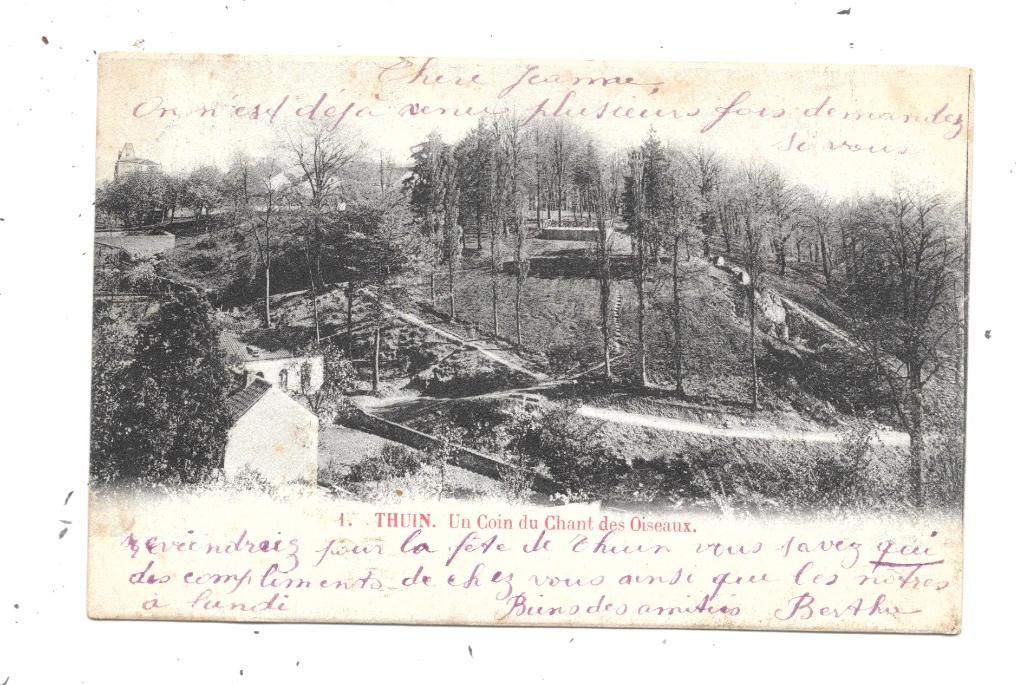 Chere Jeanne
On n'est déjà venu plusieurs fois demandez
si vous
1. THUIN. Un Coin du Chant des Oiseaux.
reviendriez pour la fête de Thuin vous savez qui
des compliments de chez vous ainsi que les notres
à lundi Biens des amitiés Bertha